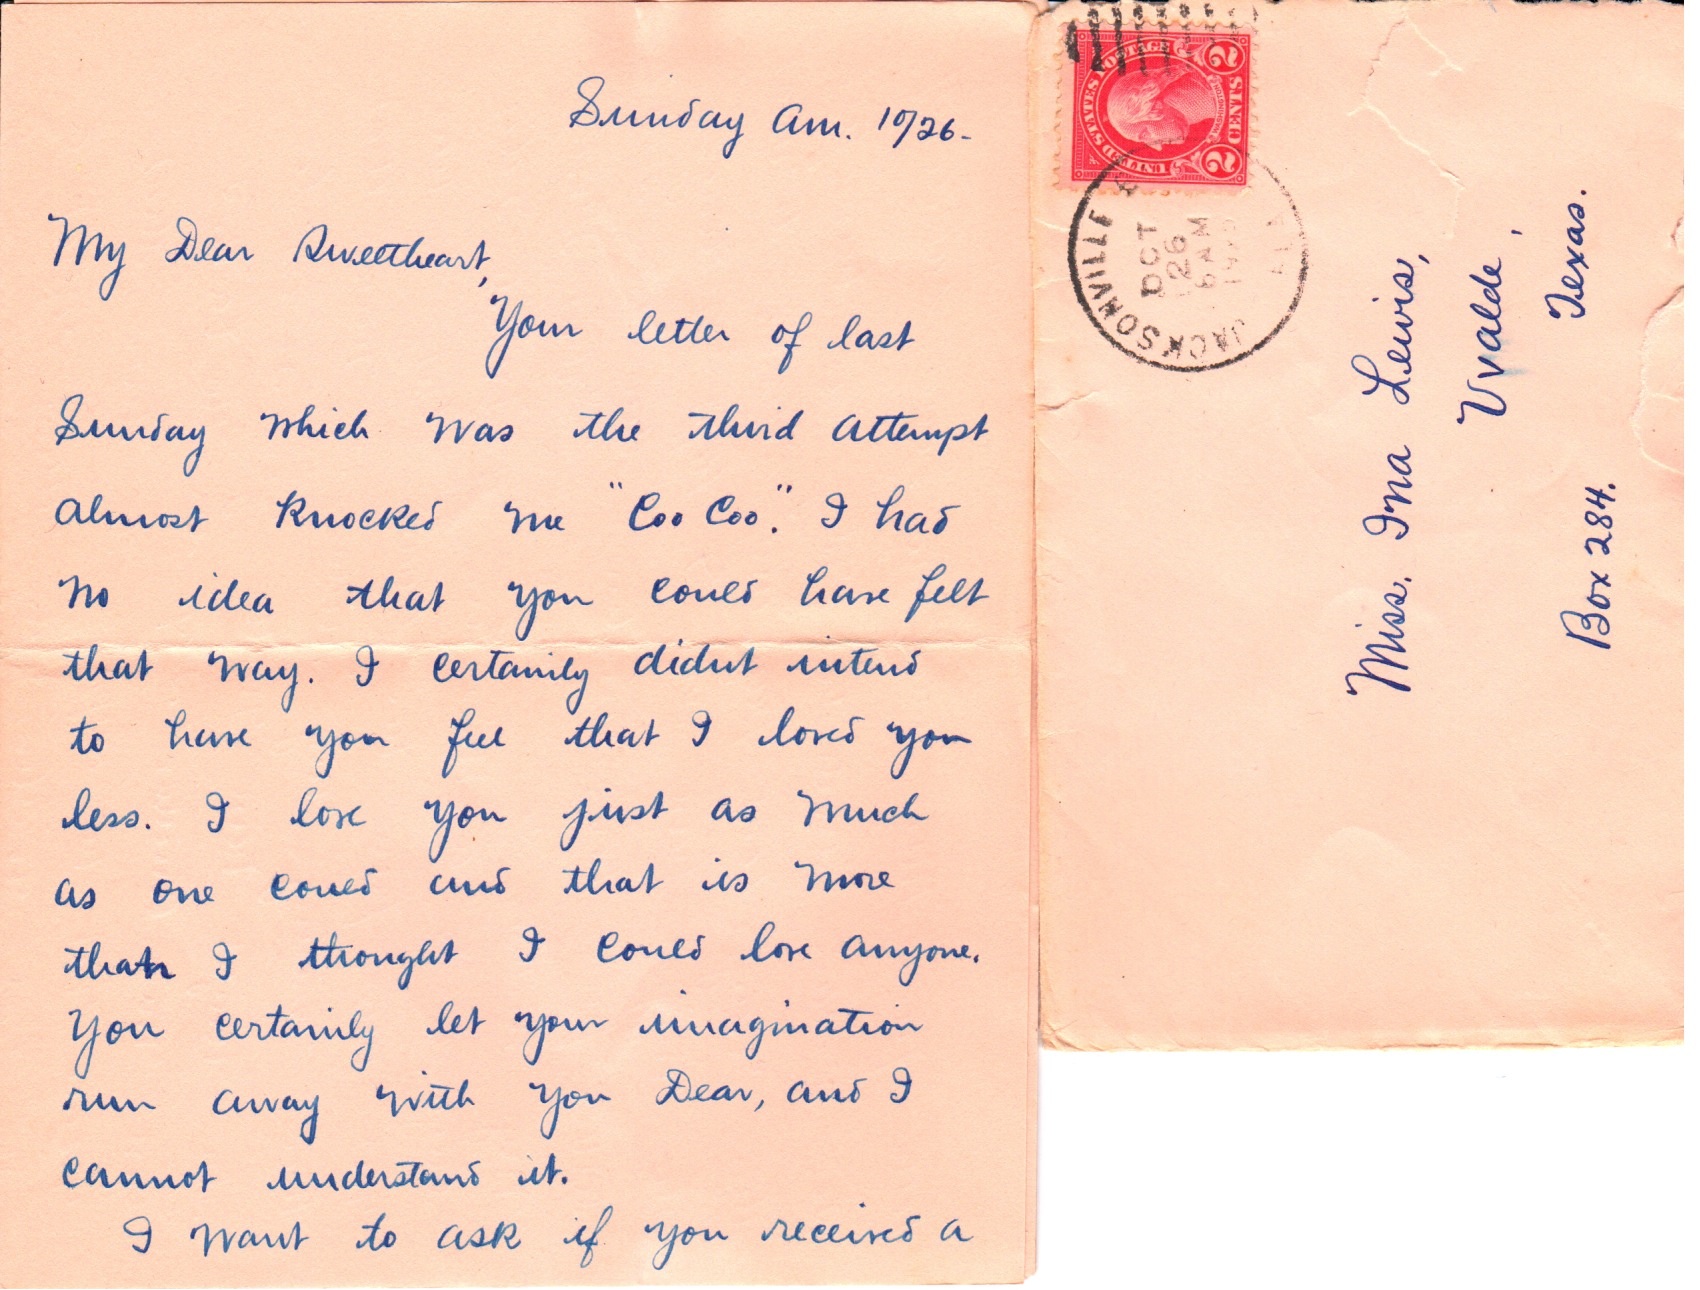 Sunday am. 10/26-
My Dear Sweetheart,
Your letter of last
Sunday which was the third attempt
almost knocked me "Coo Coo". I had
no idea that you could have felt
that way. I certainly didnt intend
to have you feel that I loved you
less. I love you just as much
as one could and that is more
than I thought I could love anyone.
You certainly let your imagination
run away with you Dear, and I
cannot understand it.
I want to ask if you received a
UNITED STATES POSTAGE
WASHINGTON
2 CENTS 2
JACKSONVILLE
OCT
26
6 AM
FLA
Miss. Ina Lewis,
Uvalde,
Texas.
Box 284.